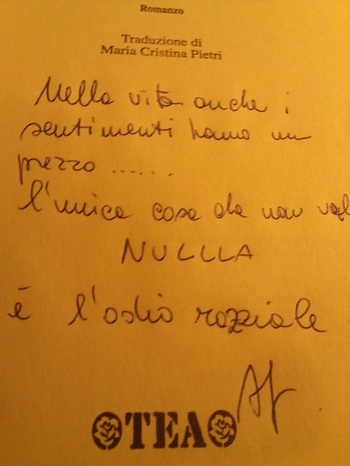 Romanzo
Traduzione di
Maria Cristina Pietri
Nella vita anche i
sentimenti hanno un
prezzo ......
l'unica cosa che non val
NULLLA
é l'odio razziale
TEA